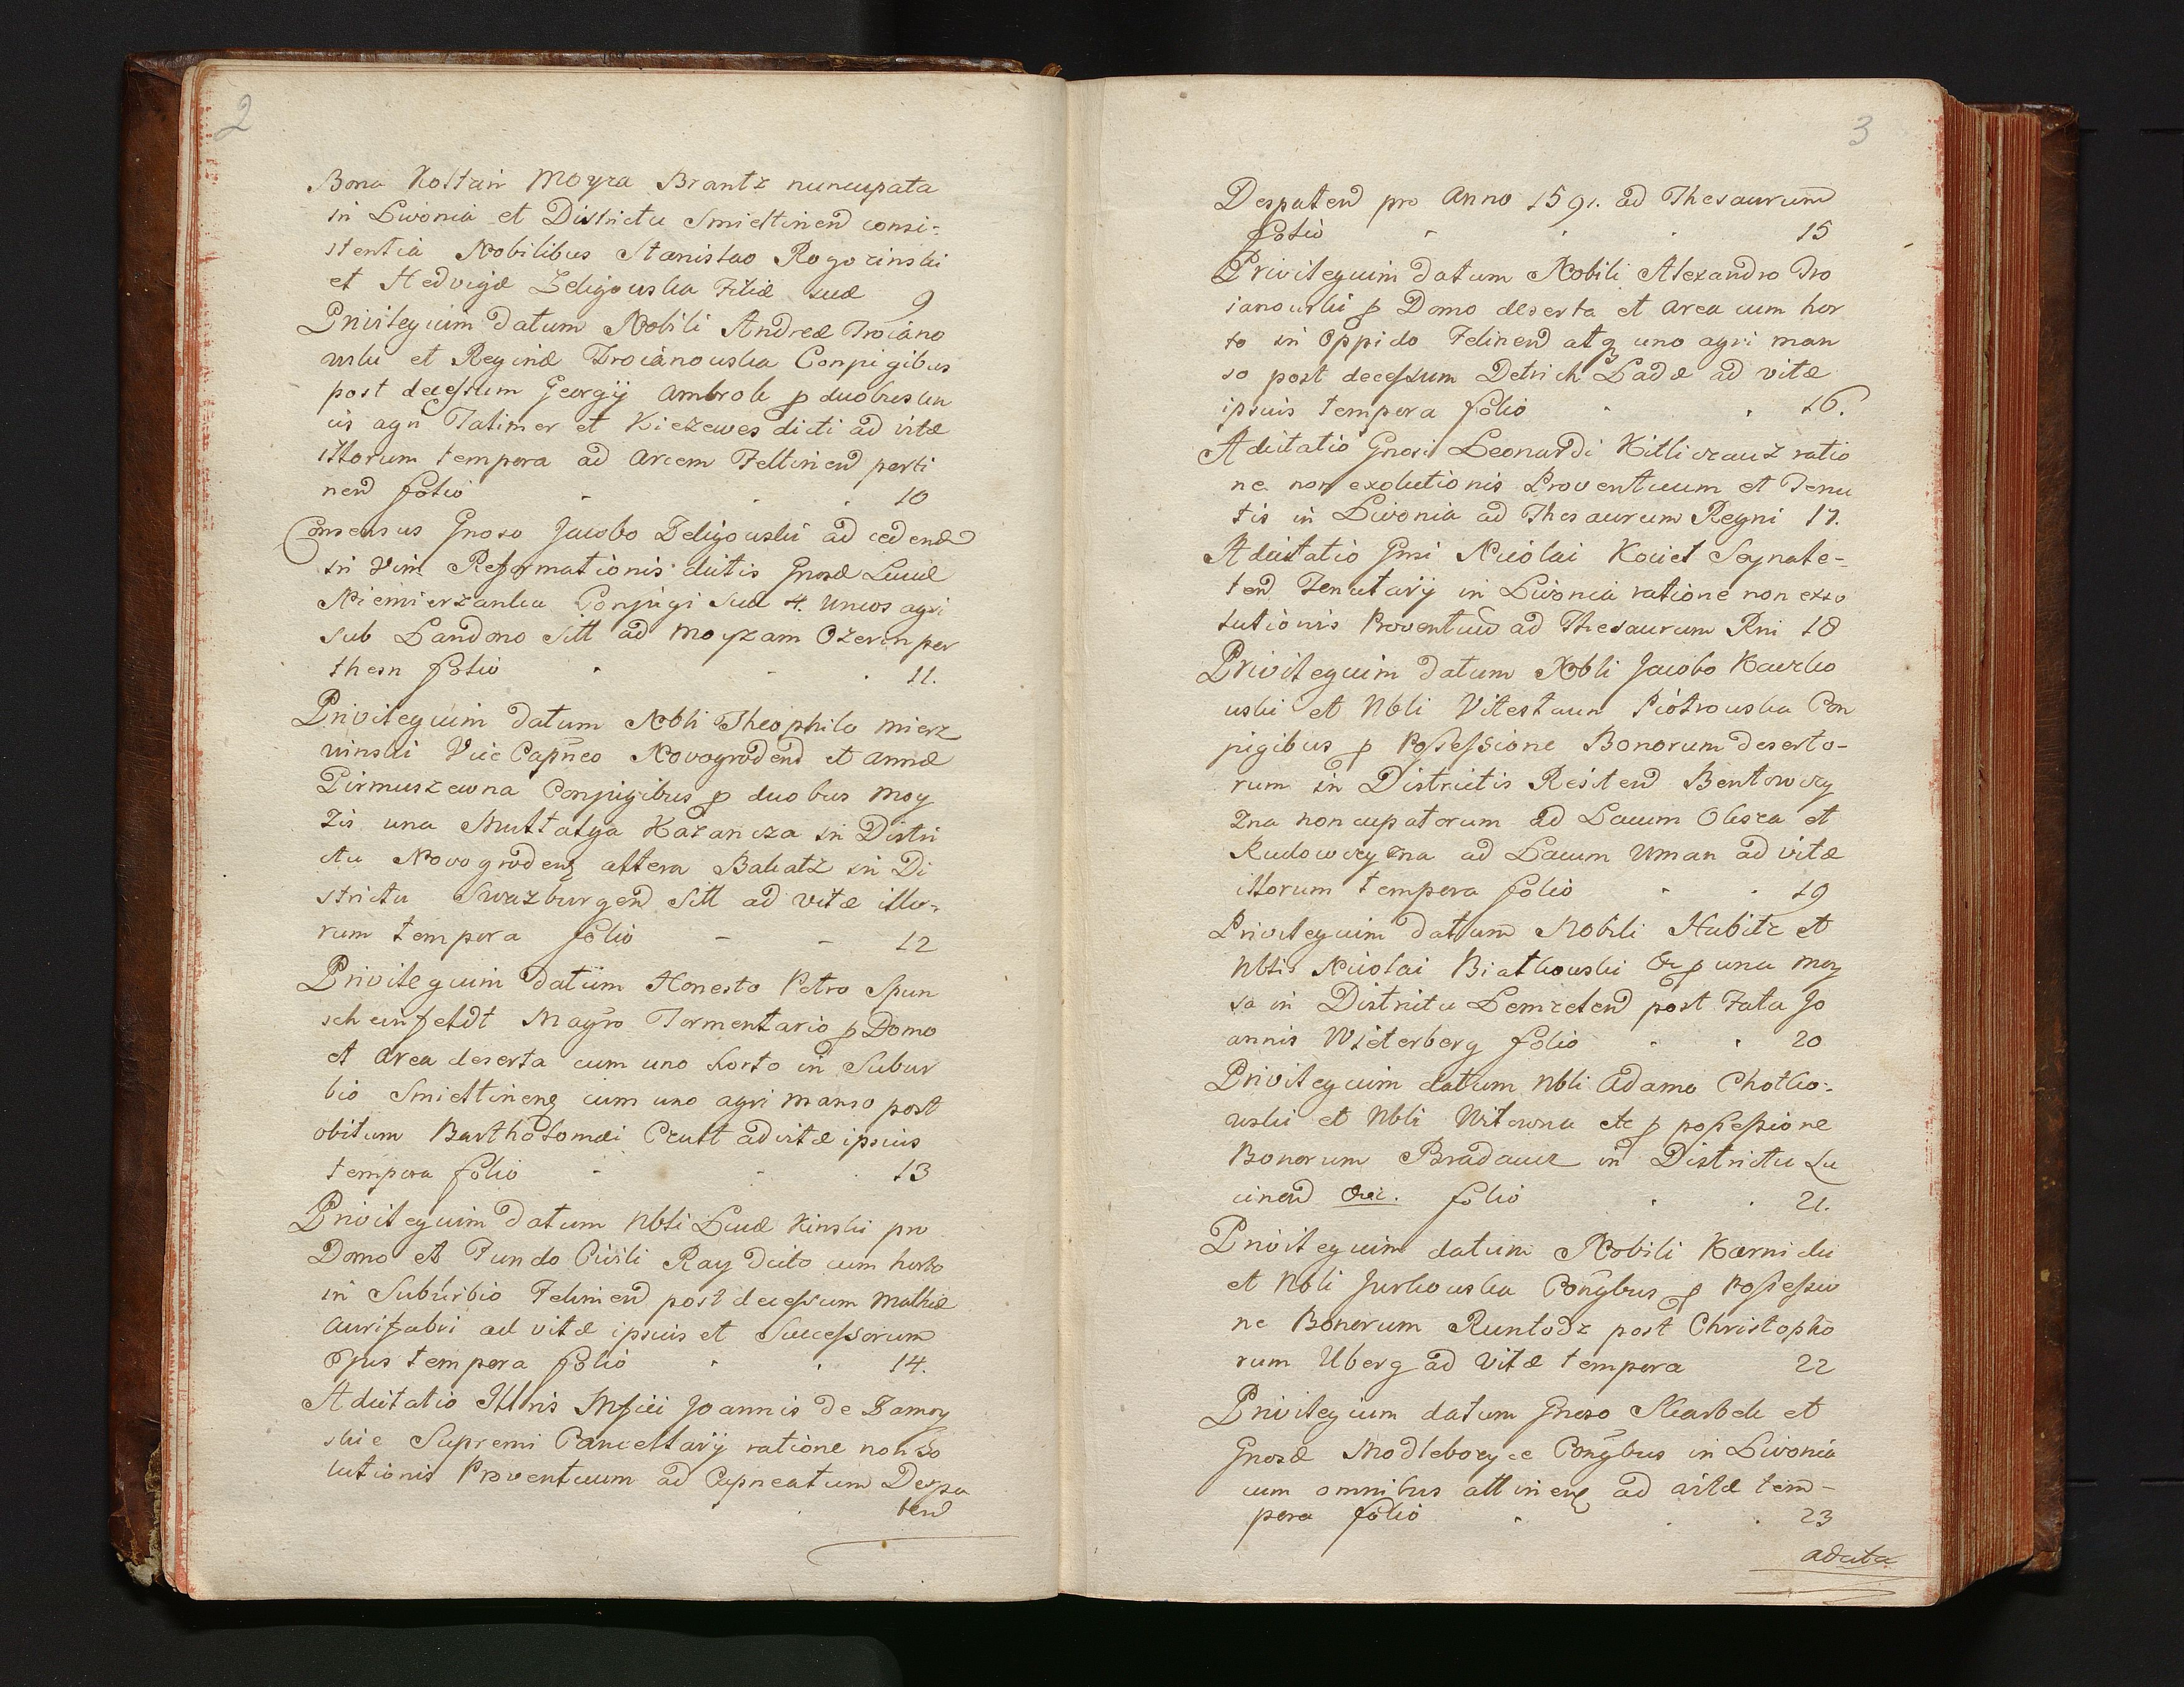 2
Bona Koltain Moyza Brantz nuncupata
in Livonia et Districtu Smiltinen consi-
stentia Nobilibus Stanislao Rogozinski
et Hedvigæ Zeligouska Filiæ suæ 9
Privileguim datum Nobili Andreæ Troiano
wski et Reginæ Troianouska Conjugibus
post decessum Georgÿ Ambrok p duobus un
cis agri Talimer et Kiezewes dicti ad vitæ
illorum tempora ad Arcem Feltinen perti
nen folio 10
Consensus Gnoso Jacobo Zeligouski ad cedend
in vim Reformationis dictis Gnosæ Luciæ
Niemierzanka Conjugi suæ 4. uncos agri
sub Landono Sitt ad Moyzam Ozerin per
thesn folio 11.
Privileguim datum Nbli Theophilo Mierz
winski Vice Capneo Novogroden et Annæ
Pirmuszewna Conjugibus p duobus Moy
zis una Muttatya Kazancza in Distri
ctu Novogroden altera Bakatz in Di
strictu Swazburgen Sitt ad vitæ illo-
rum tempora folio 12
Privileguim datum Honesto Petro Spun
scheinfeldt Magro Tormentario p Domo
et Area deserta cum uno horto in Subur
bio Smieltinen cum uno agri manso post
obitum Bartholomæi Czutt ad vitæ ipsius
tempora folio 13
Privileguim datum Nbli Lucæ Kinski pro
Domo et Fundo Civili Ray dicto cum horto
in Suburbio Felinien post decessum Mathiæ
Aurifabri ad vitæ ipsius et Successorum
Ejus tempora folio 14.
Adcitatio Illris Mfici Joannis de Zamoy
skie Supremi Cancellarÿ ratione non so
lutionis Proventuum ad Capneatum Derpa
ten
3
Derpaten pro Anno 1591. ad Thesaurum
folio 15
Privileguim datum Nobili Alexandro Tro
ianouski p Domo deserta et Area cum hor
to in Oppido Felinen atq uno agri man
so post decessum Detrich Ladæ ad vitæ
ipsuis tempora folio 16.
Adcitatio Gnosi Leonardi Kitlicrauz ratio
ne non exolutionis Proventuum et Tenu
tis in Livonia ad Thesaurum Regni 17.
Adcitatio Gnsi Nicolai Kociet Segnate-
ten Tenutarÿ in Livonia ratione non exso
lutionis Proventuu ad Thesaurum Rni 18
Privileguim datum Nbli Jacobo Kawko
uski et Nbli Vitestaun Piotrouska Con
jugibus p Possessione Bonorum deserto-
rum in Districtis Resiten Bentowczy
zna noncupatorum ad Lacum Olisza et
Rudowczyzna ad Lacum Uman ad vitæ
illorum tempora folio 19
Privileguim datum Nobili Habitz et
Nblis Nicolai Biatkouski &c p una Moy
sa in Districtu Lemzelen post Fata Jo
annis Wieterberg folio 20
Privileguim datum Nbli Adamo Chotko-
uski et Nbli Witowna etc p possessione
Bonorum Bradauz in Districtu Lu
cinen &c. folio 21.
Privileguim datum Nobili Karnicki
et Nbli Jurkouska Congbus p Possessio
ne Bonorum Runtodz post Christopho
rum Uberg ad vitæ tempora 22
Privilegium datum Gnoso Skarbek et
Gnosæ Modleboryce Congbus in Livonia
cum omnibus attinen ad vitæ tem-
pora folio 23